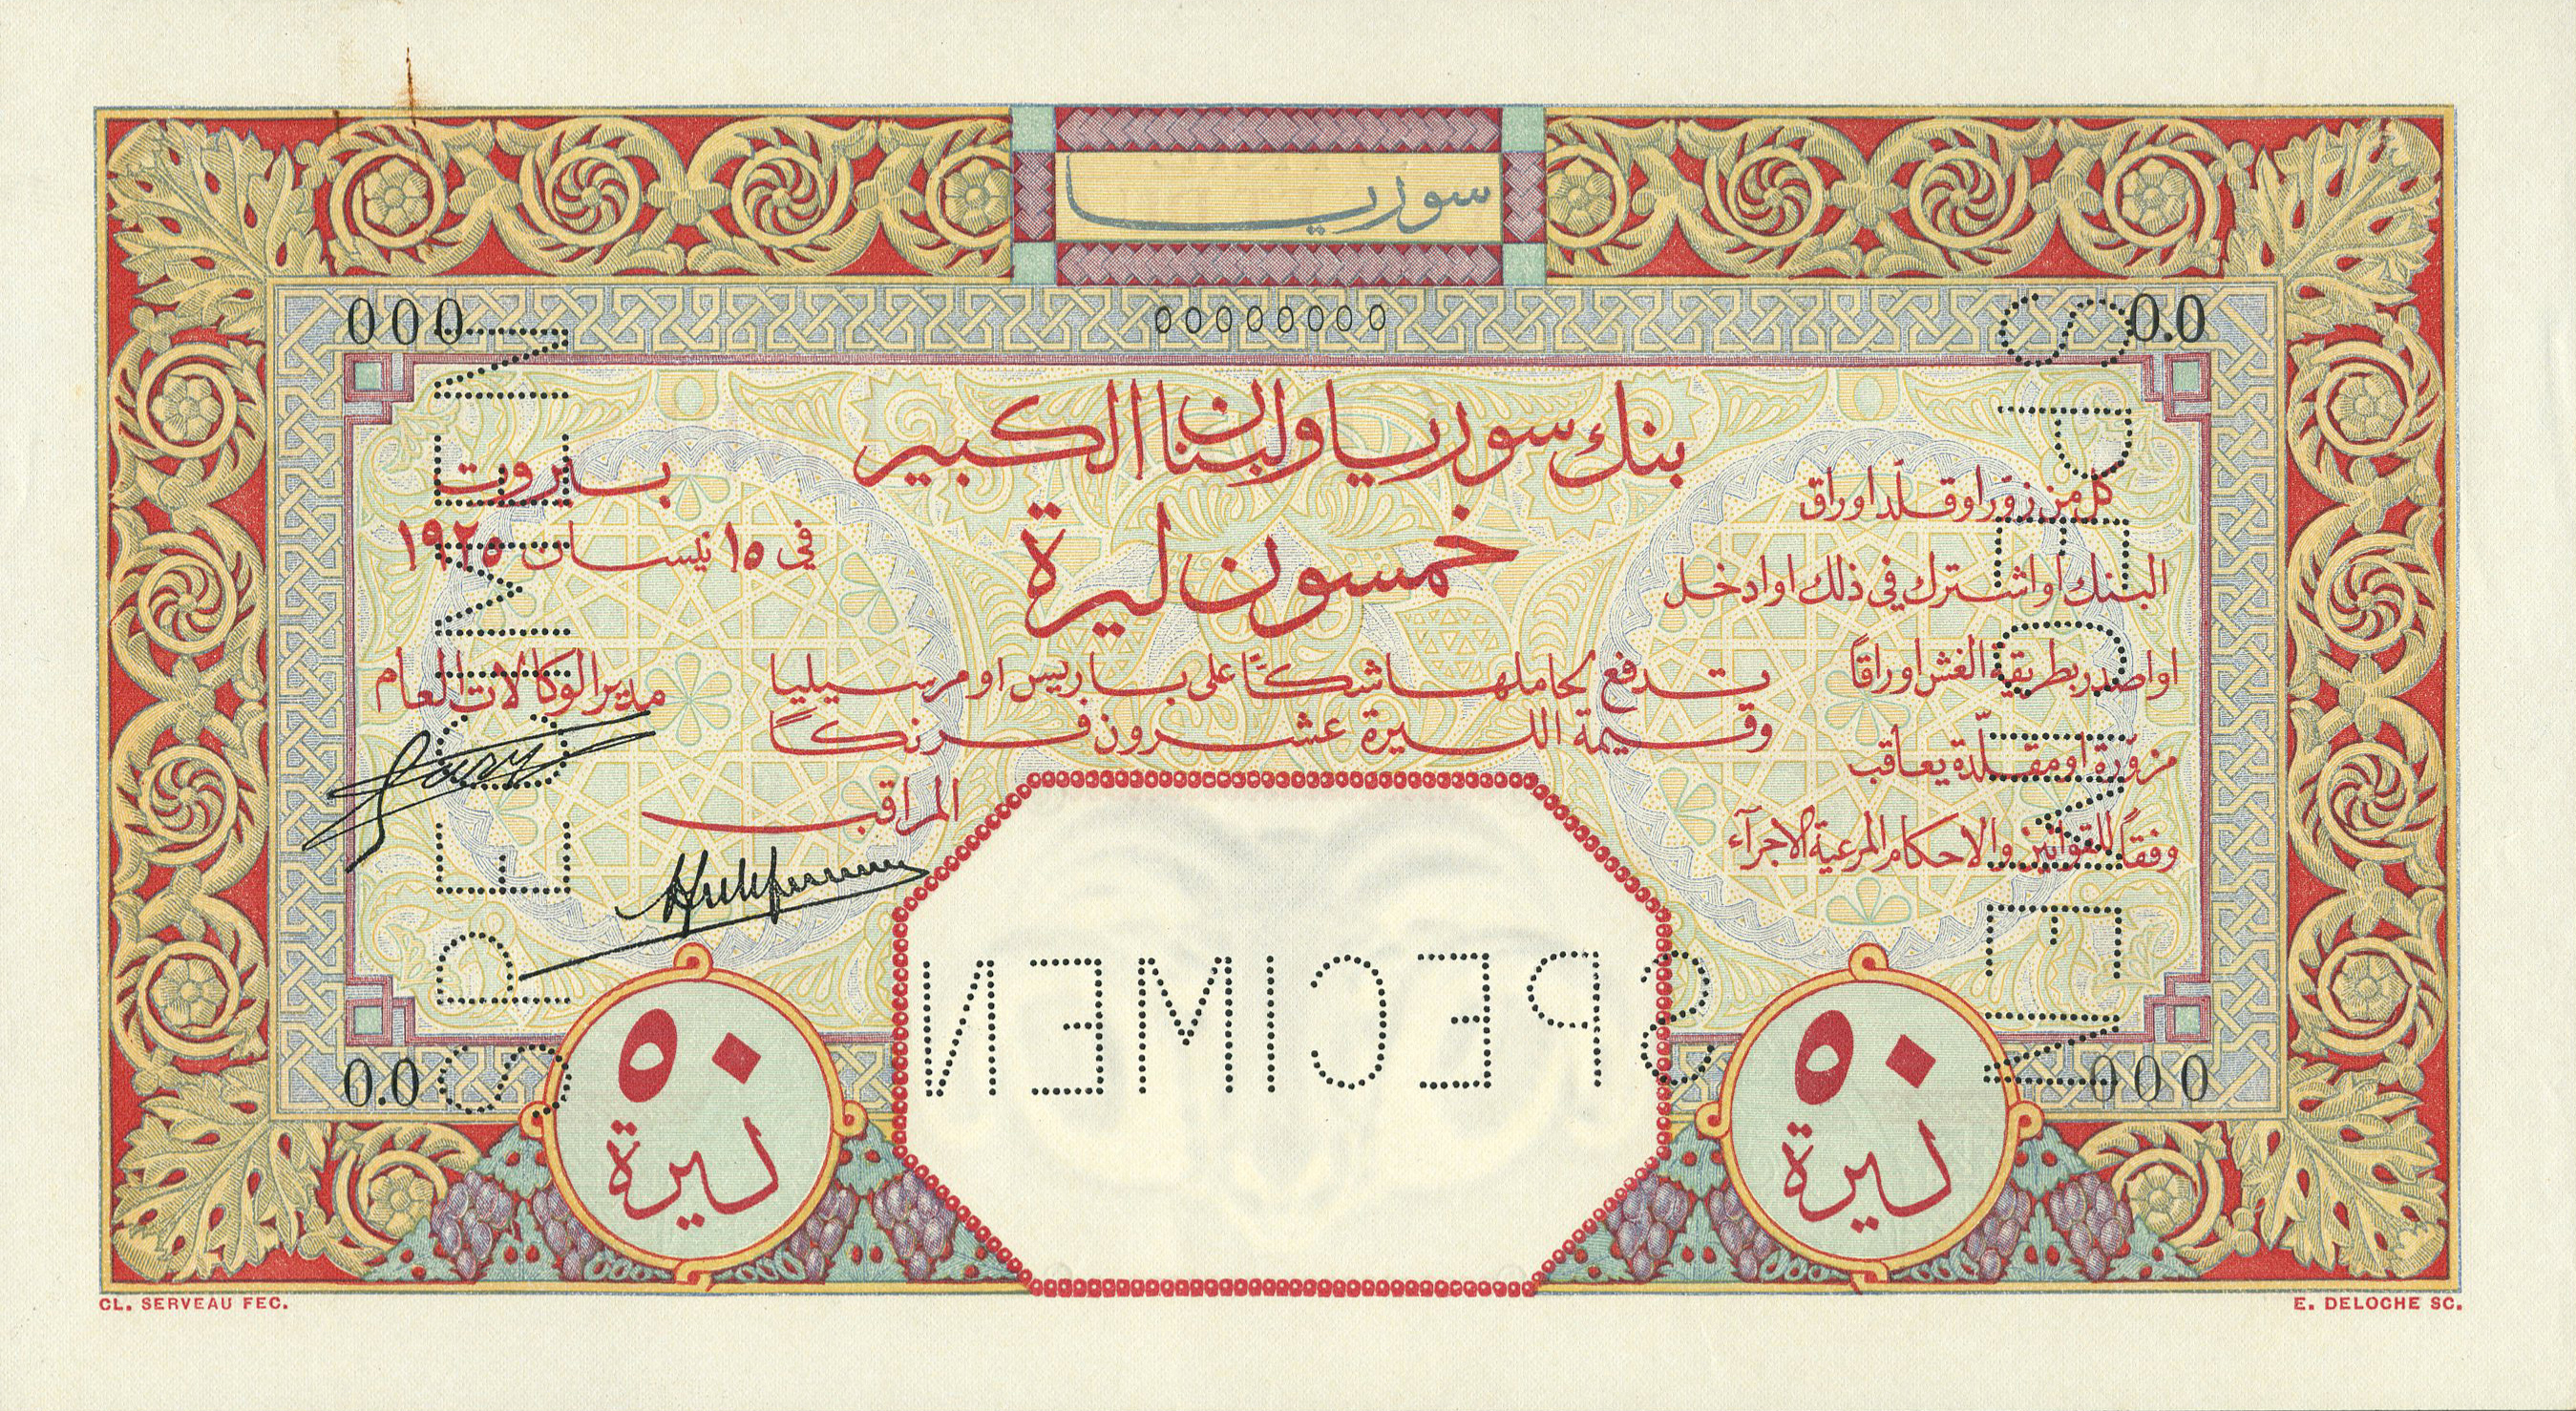 سوريا
000
00000000
00.0
بنك سوريا ولبنان الكبير
خمسون ليرة
تدفع لحاملها شكًا على باريس او مرسيليا
وقيمة الليرة عشرون فرنكًا
كل من زوّر او قلّد اوراق
البنك او اشترك في ذلك او ادخل
او اصدر بطريقة الغش اوراقًا
مزوّرة او مقلّدة يعاقب
وفقًا للقوانين والاحكام المرعية الاجرآء
بيروت
في ١٥ نيسان ١٩٢٥
مدير الوكالات العام
المراقب
SPECIMEN
SPECIMEN
SPECIMEN
0.00
000
٥٠
ليرة
٥٠
ليرة
CL. SERVEAU FEC.
E. DELOCHE SC.